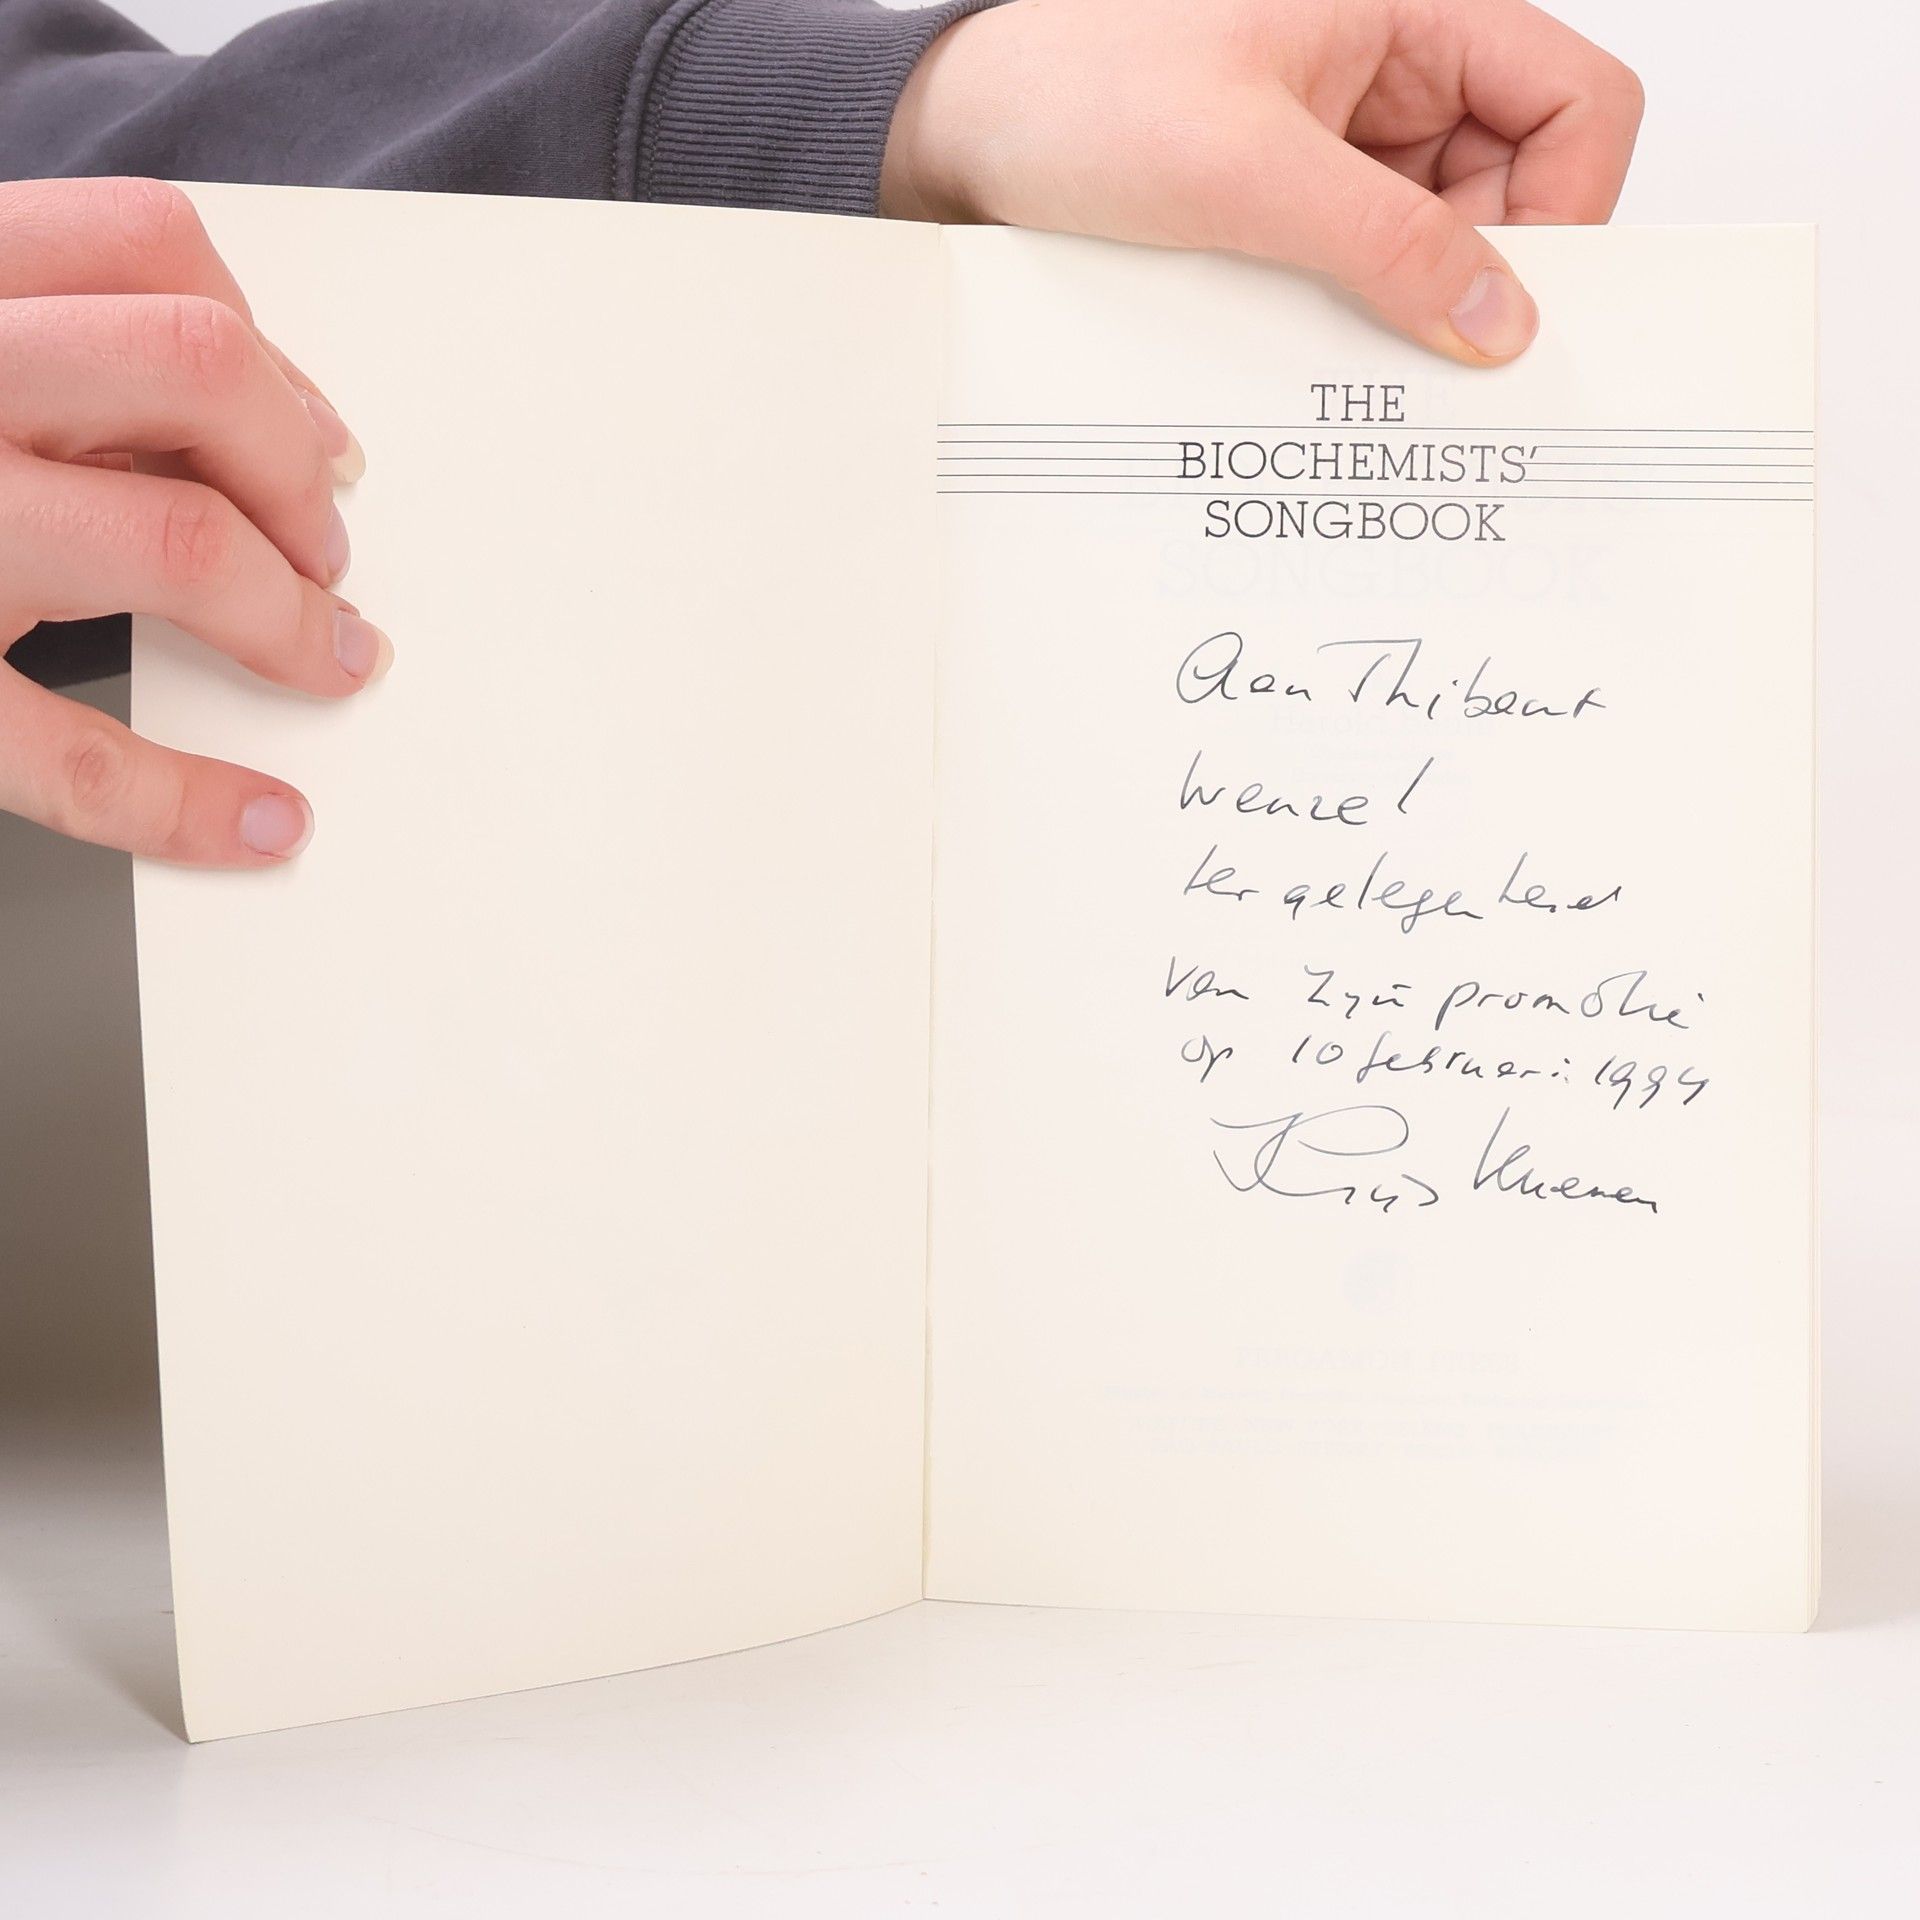 THE
BIOCHEMISTS'
SONGBOOK
Aan Thibaut
Wenzel
ter gelegenheid
van zijn promotie
op 10 februari 1994
PERGAMON PRESS